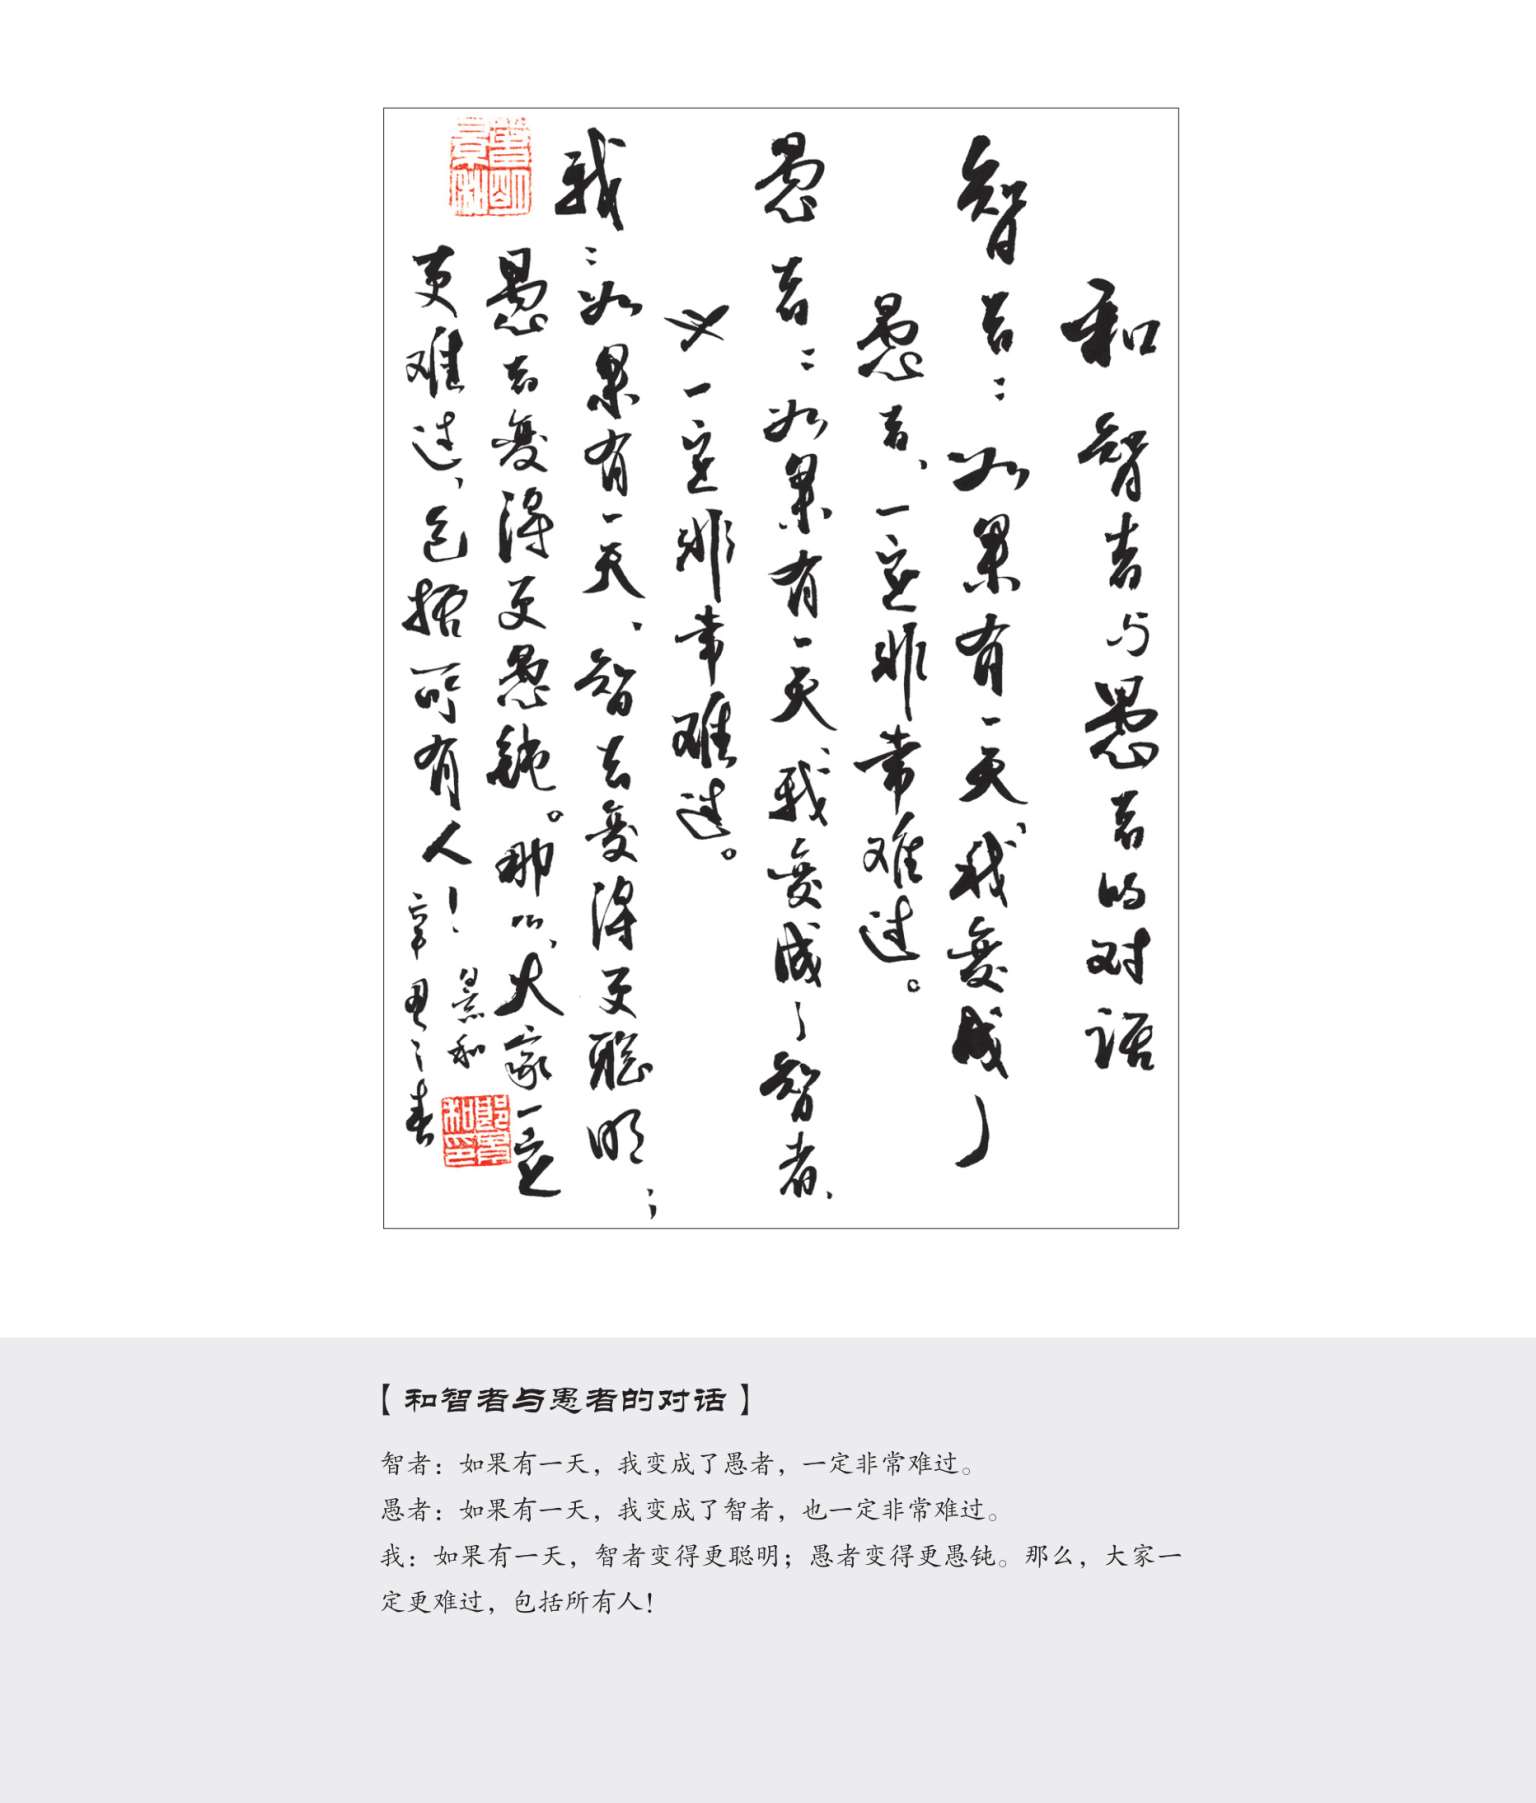 和智者与愚者的对话
智者：如果有一天，我变成了
愚者，一定非常难过。
愚者：如果有一天，我变成了智者，
也一定非常难过。
我：如果有一天，智者变得更聪明；
愚者变得更愚钝。那么，大家一定
更难过，包括所有人！
景和
辛丑之春
郎景和印
【和智者与愚者的对话】
智者：如果有一天，我变成了愚者，一定非常难过。
愚者：如果有一天，我变成了智者，也一定非常难过。
我：如果有一天，智者变得更聪明；愚者变得更愚钝。那么，大家一
定更难过，包括所有人！